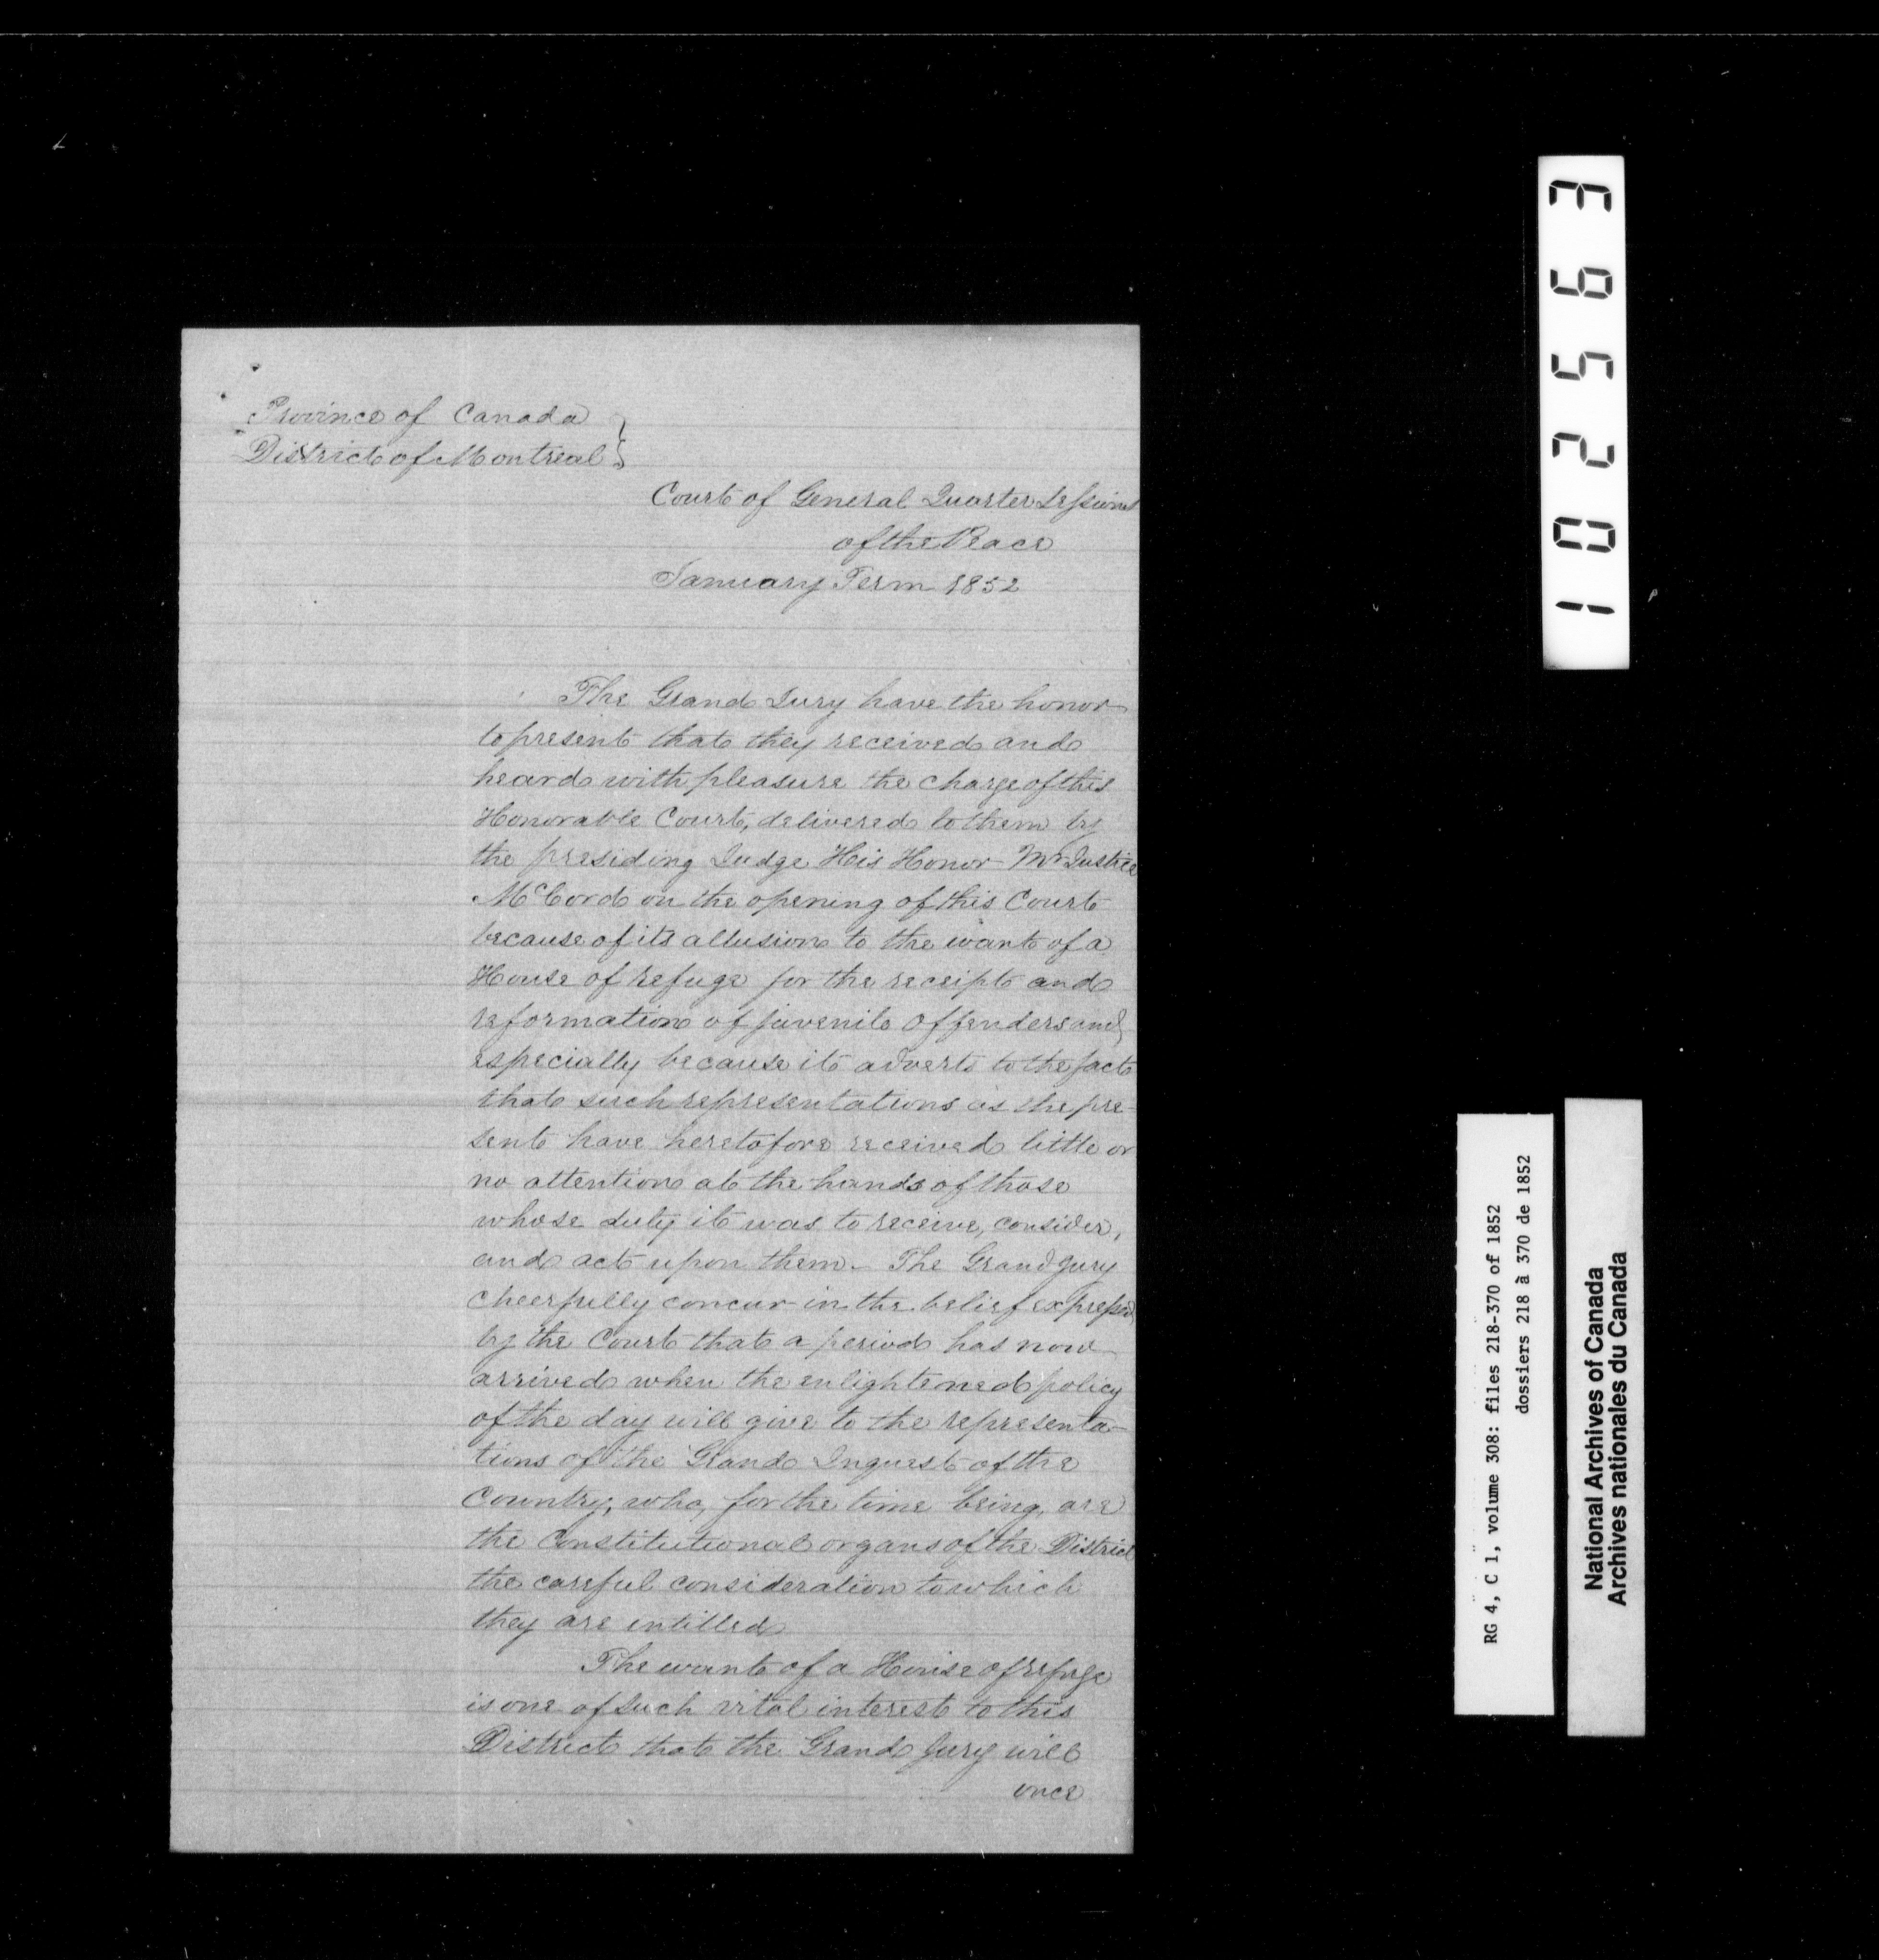 Province of Canada
District of Montreal }
Court of General Quarter Sessions
of the Peace
January Term 1852
The Grand Jury have the honor
to present that they received and
heard with pleasure the charge of this
Honorable Court, delivered to them by
the presiding Judge His Honor Mr Justice
McCord on the opening of this Court
because of its allusion to the want of a
House of refuge for the receipt and
reformation of juvenile offenders and
especially because it adverts to the fact
that such representations as the pre-
sent have heretofore received little or
no attention at the hands of those
whose duty it was to receive, consider,
and act upon them. The Grand Jury
cheerfully concur in the belief expressed
by the Court that a period has now
arrived when the enlightened policy
of the day will give to the representa-
tions of the Grand Inquest of the
Country, who, for the time being, are
the Constitutional organs of the District
the careful consideration to which
they are intitled
The want of a House of refuge
is one of such vital interest to this
District that the Grand Jury will
once
102563
RG 4, C 1, volume 308: files 218-370 of 1852
dossiers 218 à 370 de 1852
National Archives of Canada
Archives nationales du Canada